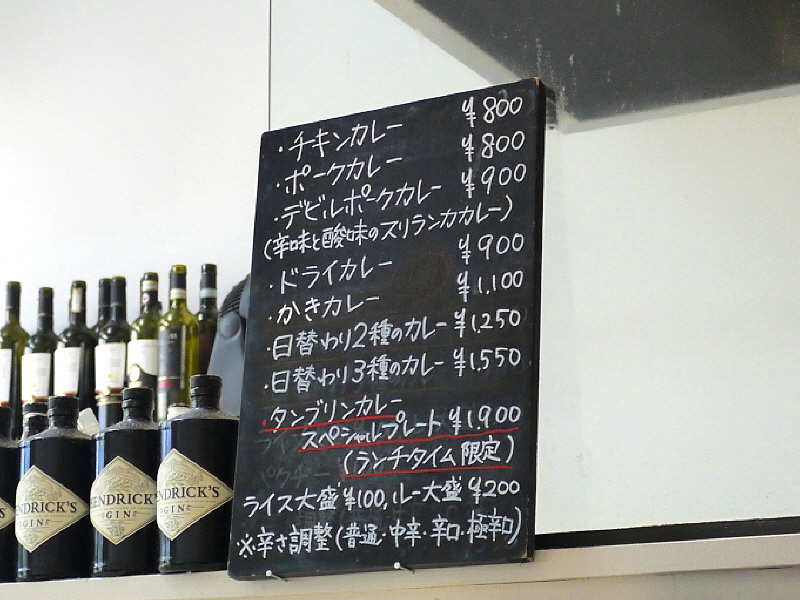 ・チキンカレー ¥800
・ポークカレー ¥800
・デビルポークカレー ¥900
(辛味と酸味のスリランカカレー)
・ドライカレー ¥900
・かきカレー ¥1,100
・日替わり2種のカレー ¥1,250
・日替わり3種のカレー ¥1,550
・タンブリンカレー
スペシャルプレート ¥1,900
(ランチタイム限定)
ライス大盛¥100, ルー大盛¥200
※辛さ調整(普通・中辛・辛口・極辛口)
HENDRICK'S
GIN
HENDRICK'S
GIN
HENDRICK'S
GIN